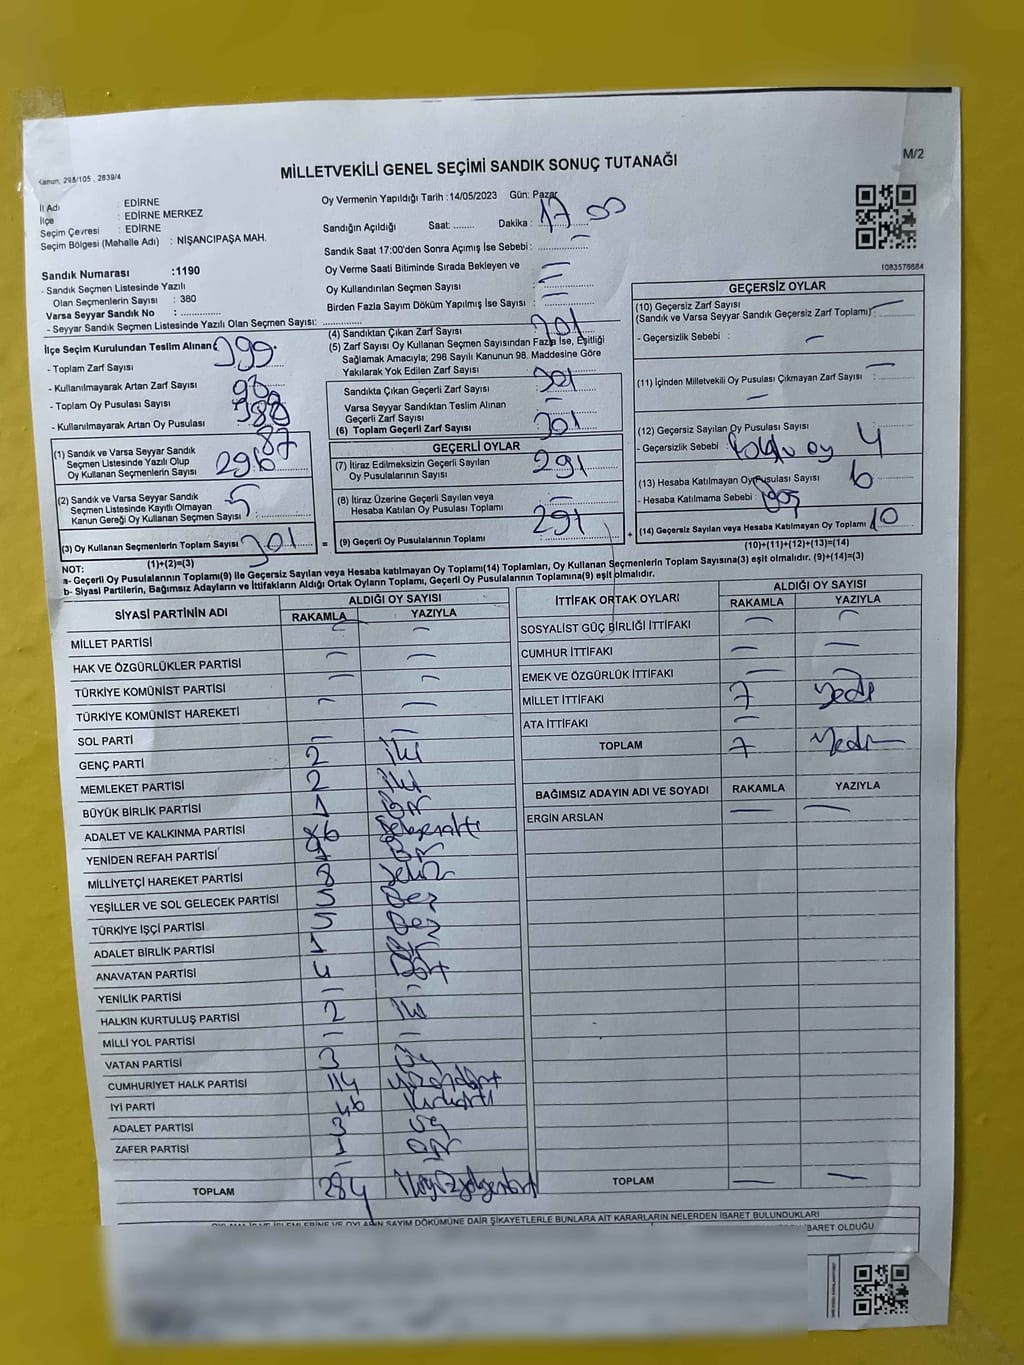 Kanun: 298/105 , 2839/4
MİLLETVEKİLİ GENEL SEÇİMİ SANDIK SONUÇ TUTANAĞI
M/2
İl Adı : EDİRNE
İlçe : EDİRNE MERKEZ
Seçim Çevresi : EDİRNE
Seçim Bölgesi (Mahalle Adı) : NİŞANCIPAŞA MAH.
Sandık Numarası :1190
- Sandık Seçmen Listesinde Yazılı
Olan Seçmenlerin Sayısı : 380
Varsa Seyyar Sandık No :
- Seyyar Sandık Seçmen Listesinde Yazılı Olan Seçmen Sayısı:
Oy Vermenin Yapıldığı Tarih :14/05/2023 Gün: Pazar
Sandığın Açıldığı Saat: Dakika : 17 00
Sandık Saat 17:00'den Sonra Açımış İse Sebebi : –
Oy Verme Saati Bitiminde Sırada Bekleyen ve
Oy Kullandırılan Seçmen Sayısı : –
Birden Fazla Sayım Döküm Yapılmış İse Sayısı : –
1083576684
İlçe Seçim Kurulundan Teslim Alınan
- Toplam Zarf Sayısı 399
- Kullanılmayarak Artan Zarf Sayısı 98
- Toplam Oy Pusulası Sayısı 388
- Kullanılmayarak Artan Oy Pusulası 87
(1) Sandık ve Varsa Seyyar Sandık
Seçmen Listesinde Yazılı Olup
Oy Kullanan Seçmenlerin Sayısı 296
(2) Sandık ve Varsa Seyyar Sandık
Seçmen Listesinde Kayıtlı Olmayan
Kanun Gereği Oy Kullanan Seçmen Sayısı : 5
(3) Oy Kullanan Seçmenlerin Toplam Sayısı 301
(1)+(2)=(3)
(4) Sandıktan Çıkan Zarf Sayısı 301
(5) Zarf Sayısı Oy Kullanan Seçmen Sayısından Fazla İse, Eşitliği
Sağlamak Amacıyla; 298 Sayılı Kanunun 98. Maddesine Göre
Yakılarak Yok Edilen Zarf Sayısı
Sandıkta Çıkan Geçerli Zarf Sayısı 301
Varsa Seyyar Sandıktan Teslim Alınan
Geçerli Zarf Sayısı –
(6) Toplam Geçerli Zarf Sayısı 301
GEÇERLİ OYLAR
(7) İtiraz Edilmeksizin Geçerli Sayılan
Oy Pusulalarının Sayısı 291
(8) İtiraz Üzerine Geçerli Sayılan veya
Hesaba Katılan Oy Pusulası Toplamı –
(9) Geçerli Oy Pusulalarının Toplamı 291
GEÇERSİZ OYLAR
(10) Geçersiz Zarf Sayısı
(Sandık ve Varsa Seyyar Sandık Geçersiz Zarf Toplamı): –
- Geçersizlik Sebebi : –
(11) İçinden Milletvekili Oy Pusulası Çıkmayan Zarf Sayısı : –
–
(12) Geçersiz Sayılan Oy Pusulası Sayısı 4
- Geçersizlik Sebebi : oy
(13) Hesaba Katılmayan Oy Pusulası Sayısı 6
- Hesaba Katılmama Sebebi : boş
(14) Geçersiz Sayılan veya Hesaba Katılmayan Oy Toplamı 10
(10)+(11)+(12)+(13)=(14)
NOT:
a- Geçerli Oy Pusulalarının Toplamı(9) ile Geçersiz Sayılan veya Hesaba katılmayan Oy Toplamı(14) Toplamları, Oy Kullanan Seçmenlerin Toplam Sayısına(3) eşit olmalıdır. (9)+(14)=(3)
b- Siyasi Partilerin, Bağımsız Adayların ve İttifakların Aldığı Ortak Oyların Toplamı, Geçerli Oy Pusulalarının Toplamına(9) eşit olmalıdır.
SİYASİ PARTİNİN ADI ALDIĞI OY SAYISI
RAKAMLA YAZIYLA
MİLLET PARTİSİ – –
HAK VE ÖZGÜRLÜKLER PARTİSİ – –
TÜRKİYE KOMÜNİST PARTİSİ – –
TÜRKİYE KOMÜNİST HAREKETİ – –
SOL PARTİ – –
GENÇ PARTİ 2 iki
MEMLEKET PARTİSİ 2 iki
BÜYÜK BİRLİK PARTİSİ 1 Bir
ADALET VE KALKINMA PARTİSİ 86 Seksenaltı
YENİDEN REFAH PARTİSİ 1 Bir
MİLLİYETÇİ HAREKET PARTİSİ 8 Sekiz
YEŞİLLER VE SOL GELECEK PARTİSİ 5 Beş
TÜRKİYE İŞÇİ PARTİSİ 5 Beş
ADALET BİRLİK PARTİSİ 1 Bir
ANAVATAN PARTİSİ 4 Dört
YENİLİK PARTİSİ – –
HALKIN KURTULUŞ PARTİSİ 2 iki
MİLLİ YOL PARTİSİ – –
VATAN PARTİSİ 3 Üç
CUMHURİYET HALK PARTİSİ 114 Yüzondört
İYİ PARTİ 46 Kırkaltı
ADALET PARTİSİ 3 Üç
ZAFER PARTİSİ 1 Bir
– –
TOPLAM 284 İkiyüzseksendört
İTTİFAK ORTAK OYLARI ALDIĞI OY SAYISI
RAKAMLA YAZIYLA
SOSYALİST GÜÇ BİRLİĞİ İTTİFAKI – –
CUMHUR İTTİFAKI – –
EMEK VE ÖZGÜRLÜK İTTİFAKI – –
MİLLET İTTİFAKI 7 yedi
ATA İTTİFAKI –
TOPLAM 7 Yedi
BAĞIMSIZ ADAYIN ADI VE SOYADI RAKAMLA YAZIYLA
ERGİN ARSLAN – –
TOPLAM – –
OYLARIN SAYIM DÖKÜMÜNE DAİR ŞİKAYETLERLE BUNLARA AİT KARARLARIN NELERDEN İBARET BULUNDUKLARI
İBARET OLDUĞU